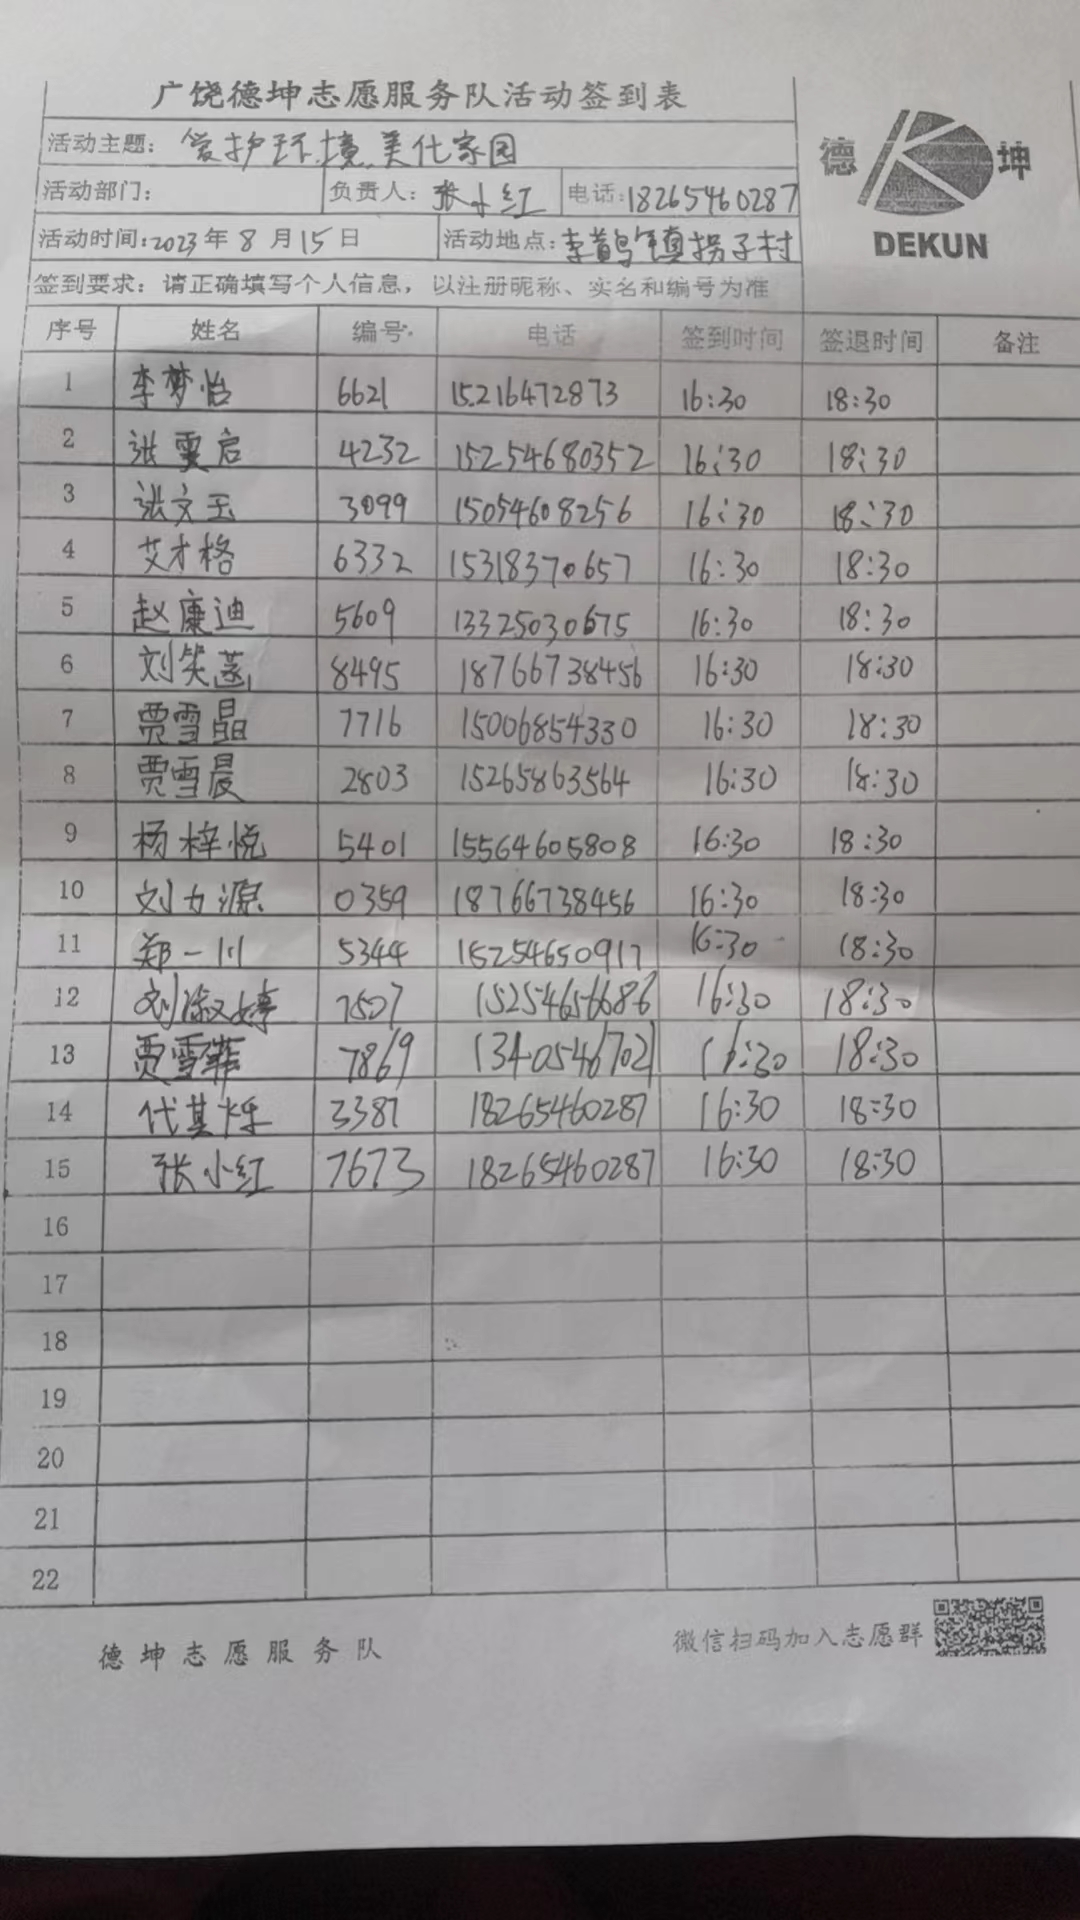 广饶德坤志愿服务队活动签到表
活动主题: 爱护环境,美化家园
德 坤
活动部门: 负责人: 张小红 电话:18265460287
DEKUN
活动时间:2023年8月15日 活动地点:李鹊镇拐子村
签到要求: 请正确填写个人信息, 以注册昵称、实名和编号为准
序号 姓名 编号 电话 签到时间 签退时间 备注
1 李梦怡 6621 15216472873 16:30 18:30
2 张雯启 4232 15254680352 16:30 18:30
3 张文玉 3099 15054608256 16:30 18:30
4 艾才格 6332 15318370657 16:30 18:30
5 赵康迪 5609 13325030675 16:30 18:30
6 刘笑菡 8495 18766738456 16:30 18:30
7 贾雪晶 7716 15006854330 16:30 18:30
8 贾雪晨 2803 15265863564 16:30 18:30
9 杨梓悦 5401 15564605808 16:30 18:30
10 刘力源 0359 18766738456 16:30 18:30
11 郑一川 5344 15254650917 16:30 18:30
12 刘淑婷 7507 15254656686 16:30 18:30
13 贾雪菲 7869 13405467021 16:30 18:30
14 代其烁 3387 18265460287 16:30 18:30
15 张小红 7673 18265460287 16:30 18:30
16
17
18
19
20
21
22
德坤志愿服务队 微信扫码加入志愿群